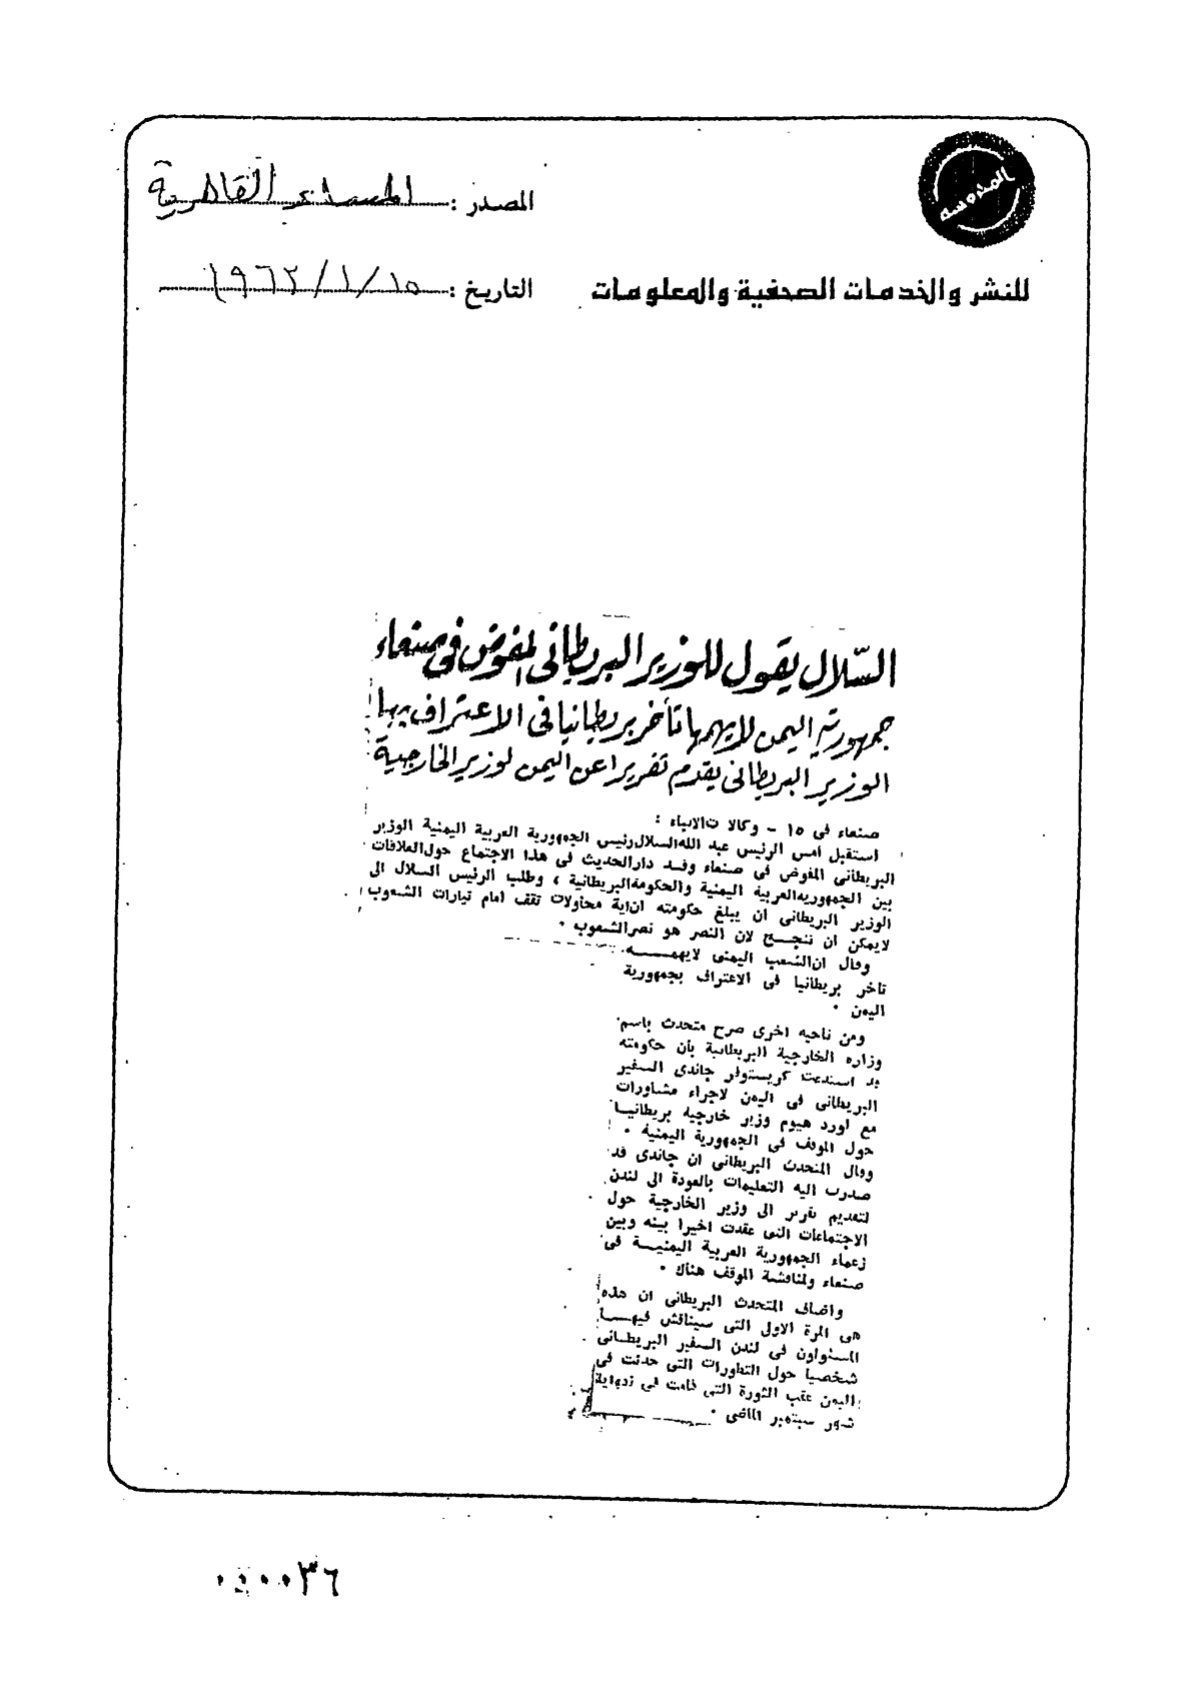 المحروسة
المصدر : المساء القاهرية
للنشر والخدمات الصحفية والمعلومات
التاريخ : ١٥/١/١٩٦٢
السّلال يقول للوزير البريطانى المفوض فى صنعاء
جمهورية اليمن لايهمها تأخر بريطانيا فى الاعتراف بها
الوزير البريطانى يقدم تقريرا عن اليمن لوزير الخارجية
صنعاء فى ١٥ - وكالات الانباء :
استقبل امس الرئيس عبد الله السلال رئيس الجمهورية العربية اليمنية الوزير
البريطانى المفوض فى صنعاء وقد دار الحديث فى هذا الاجتماع حول العلاقات
بين الجمهورية العربية اليمنية والحكومة البريطانية ، وطلب الرئيس السلال الى
الوزير البريطانى ان يبلغ حكومته ان اية محاولات تقف امام تيارات الشعوب
لايمكن ان تنجح لان النصر هو نصر الشعوب .
وقال ان الشعب اليمنى لايهمه
تاخر بريطانيا فى الاعتراف بجمهورية
اليمن .
ومن ناحيه اخرى صرح متحدث باسم
وزاره الخارجية البريطانية بأن حكومته
قد استدعت كريستوفر جاندى السفير
البريطانى فى اليمن لاجراء مشاورات
مع لورد هيوم وزير خارجية بريطانيا
حول الموقف فى الجمهورية اليمنية .
وقال المتحدث البريطانى ان جاندى قد
صدرت اليه التعليمات بالعودة الى لندن
لتقديم تقرير الى وزير الخارجية حول
الاجتماعات التى عقدت اخيرا بينه وبين
زعماء الجمهورية العربية اليمنية فى
صنعاء ولمناقشة الموقف هناك .
واضاف المتحدث البريطانى ان هذه
هى المرة الاولى التى سيناقش فيها
المسئولون فى لندن السفير البريطانى
شخصيا حول التطورات التى حدثت فى
اليمن عقب الثورة التى قامت فى نهاية
شهر سبتمبر الماضى .